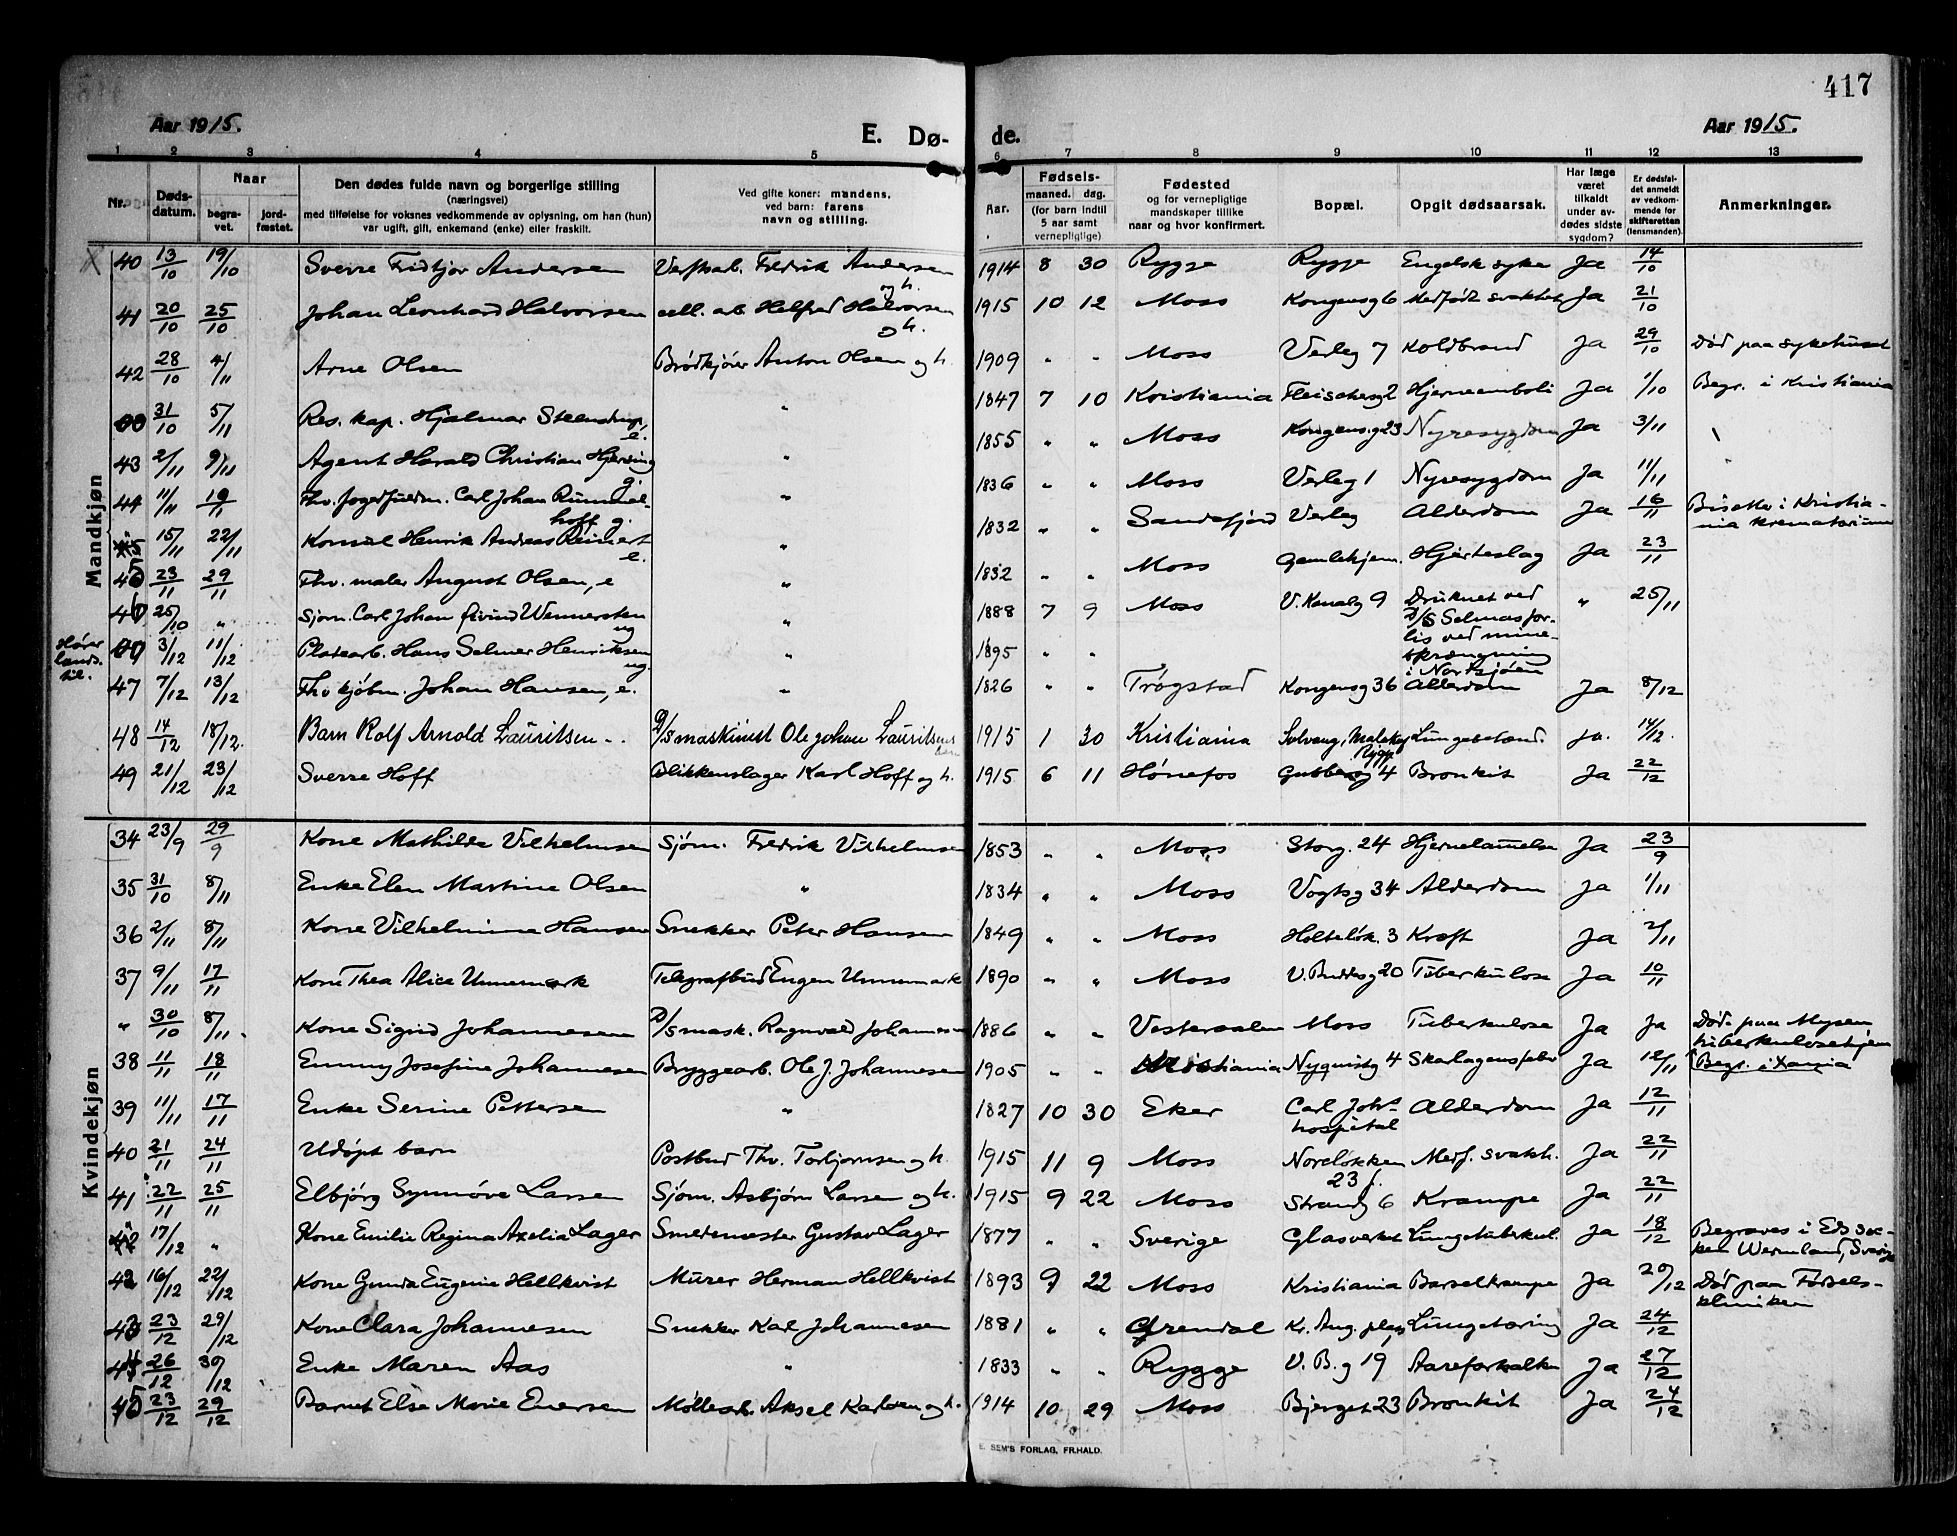 417
Aar 1915.
E. Dø-
de.
Aar 1915.
1 2 3 4 5 6 7 8 9 10 11 12 13
Nr.
Døds-
datum.
Naar
begra-
vet.
jord-
fæstet.
Den dødes fulde navn og borgerlige stilling
(næringsvei)
med tilføielse for voksnes vedkommende av oplysning, om han (hun)
var ugift, gift, enkemand (enke) eller fraskilt.
Ved gifte koner: mandens,
ved barn: farens
navn og stilling.
Aar.
Fødsels-
maaned. dag.
(for barn indtil
5 aar samt
vernepligtige)
Fødested
og for vernepligtige
mandskaper tillike
naar og hvor konfirmert.
Bopæl.
Opgit dødsaarsak.
Har læge
været
tilkaldt
under av-
dødes sidste
sygdom?
Er dødsfal-
det anmeldt
av vedkom-
mende for
skifteretten
(lensmanden).
Anmerkninger.
Mandkjøn
40 13/10 19/10 Sverre Fridtjov Andersen Verftsarb. Fredrik Andersen og h. 1914 8 30 Rygge Rygge Engelsk syke Ja 14/10
41 20/10 25/10 Johan Leonhard Halvorsen cell. arb. Helfred Halvorsen o h. 1915 10 12 Moss Kongensg 6 Medfødt svakhet Ja 21/10
42 28/10 4/11 Arne Olsen Brødkjører Anton Olsen og h. 1909 " " Moss Verleg 7 Koldbrand Ja 29/10 Død paa sykehuset
31/10 5/11 Res. kap. Hjalmar Steenstrup, e. " 1847 7 10 Kristiania Fleischersg 2 Hjerneemboli Ja 1/10 Begr. i Kristiania
43 2/11 9/11 Agent Harald Christian Hjersing g. " 1855 " " Moss Kongensg 23 Nyresygdom Ja 3/11
44 11/11 Thv. fogedfuldm. Carl Johan Rummel-
hoff g. " 1836 " " Moss Verleg 1 Nyresygdom Ja 11/11
" 15/11 22/11 Konsul Henrik Andreas Reinert e. " 1832 " " Sandefjord Verleg Alderdom Ja 16/11 Bisettes i Kristia-
nia krematorium
45 23/11 29/11 Thv. maler August Olsen, e " 1832 " " Moss Gamlehjem. Hjerteslag Ja 23/11
46 25/10 " Sjøm. Carl Johan Øivind Wennersten ug " 1888 7 9 Moss V. Kanalg 9 Druknet ved
D/S Selmas for-
lis ved mine-
sprængning
i Nordsjøen " 25/11
Hører
lands-
til.
3/12 11/12 Platearb. Hans Selmer Henriksen ug. " 1895 " "
47 7/12 13/12 Thv kjøbm. Johan Hansen, e. " 1826 " " Trøgstad Kongensg 36 Alderdom Ja 8/12
48 14/12 18/12. Barn Rolf Arnold Lauritsen D/S maskinist Ole Johan Lauritsens 1915 1 30 Kristiania Solvang, Rygge Lungebetænd. ja. 14/12.
49 21/12 23/12 Sverre Hoff Blikkenslager Karl Hoff og h. 1915 6 11 Hønefos Gubbeg 4 Bronkit Ja 22/12
Kvindekjøn
34 23/9 29/9 Kone Mathilde Vilhelmsen Sjøm. Fredrik Vilhelmsen 1853 " " Moss Storg. 24 Hjernelammelse Ja 23/9
35 31/10 8/11 Enke Elen Martine Olsen " 1834 " " Moss Vogtsg 34 Alderdom Ja 1/11
36 2/11 8/11 Kone Vilhelmine Hansen Snekker Peter Hansen 1849 " " Moss Holteløk. 3 Kræft Ja 2/11
37 9/11 17/11 Kone Thea Alice Unnemark Telegrafbud Eugen Unnemark 1890 " " Moss V. Buddesg 20 Tuberkulose Ja 10/11
" 30/10 8/11 Kone Sigrid Johannesen D/S mask. Ragnvald Johannesen 1886 " " Vesteraalen Moss Tuberkulose Ja Ja Død paa Mysen
tuberkulosehjem
38 11/11 18/11 Emmy Josefine Johannesen Bryggearb. Ole J. Johannesen 1905 " " Kristiania Nyquistg 4 Skarlagensfeber Ja 12/11 Begr. i Xania
39 11/11 17/11 Enke Serine Pettersen " 1827 10 30 Eker Carl Johs
hospital Alderdom Ja 12/11
40 21/11 24/11 Udøpt barn Postbud Thv. Torbjørnsen og h. 1915 11 9 Moss Noreløkken
23 Medf. svakh. Ja 22/11
41 22/11 25/11 Elbjørg Synnøve Larsen Sjøm. Asbjørn Larsen og h. 1915 9 22 Moss Strandg 6 Krampe Ja 22/11
" 17/12 " Kone Emilie Regina Axelia Lager Smedemester Gustav Lager 1877 " " Sverige Glasverket Lungetuberkul. Ja 18/12 Begraves i Eds sok-
ken Wermland, Sverige
42 16/12 22/12 Kone Gunda Eugenie Hellkvist Murer Herman Hellkvist 1893 9 22 Moss Kristiania Barselkrampe Ja 20/12 Død paa Fødsels-
kliniken
43 23/12 29/12 Kone Clara Johannesen Snekker Karl Johannesen 1881 " " Kr. Aug. plas Lungetæring Ja 24/12
44 26/12 30/12 Enke Maren Aas " 1833 " " Rygge V. B. g 19 Aareforkalkn Ja 27/12
45 23/12 29/12 Barnet Else Marie Enersen Møllearb. Aksel Karlsen og h. 1914 10 29 Moss Bjerget 23 Bronkit Ja 24/12
E. SEM'S FORLAG, FR.HALD.